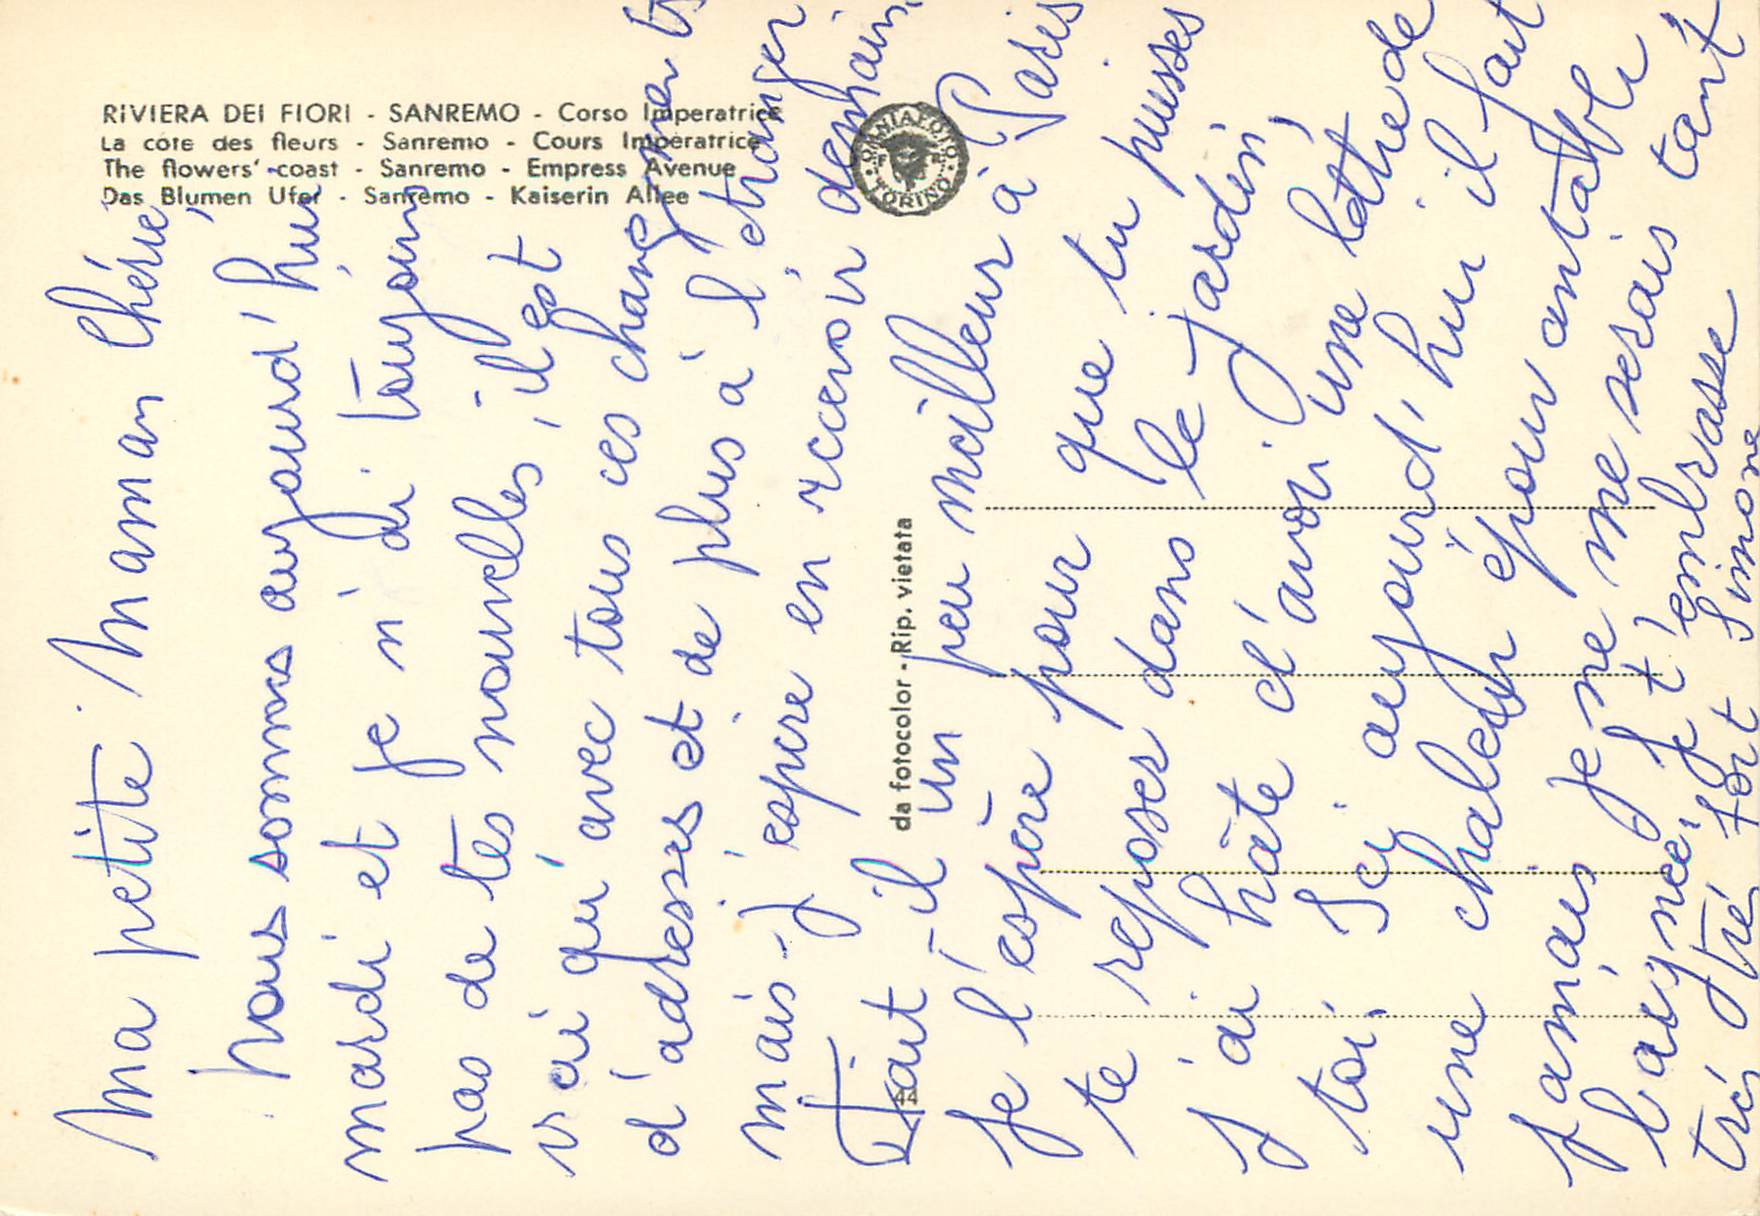 RIVIERA DEI FIORI - SANREMO - Corso Imperatrice
La côte des fleurs - Sanremo - Cours Impératrice
The flowers'-coast - Sanremo - Empress Avenue
Das Blumen Ufer - Sanremo - Kaiserin Allee
OMNIAFOTO
TORINO
da fotocolor - Rip. vietata
Ma petite Maman Chérie,
Nous sommes aujourd'hui
mardi et je n'ai toujours
pas de tes nouvelles, il est
vrai qu'avec tous ces changements
d'adresses et de plus à l'étranger
mais j'espère en recevoir demain.
Fait-il un peu meilleur à Paris
je l'espère pour que tu puisses
te reposer dans le jardin,
J'ai hâte d'avoir une lettre de
toi. Ici aujourd'hui il fait
une chaleur épouvantable
jamais je ne me serais tant
baignée. Je t'embrasse
très très fort Simone